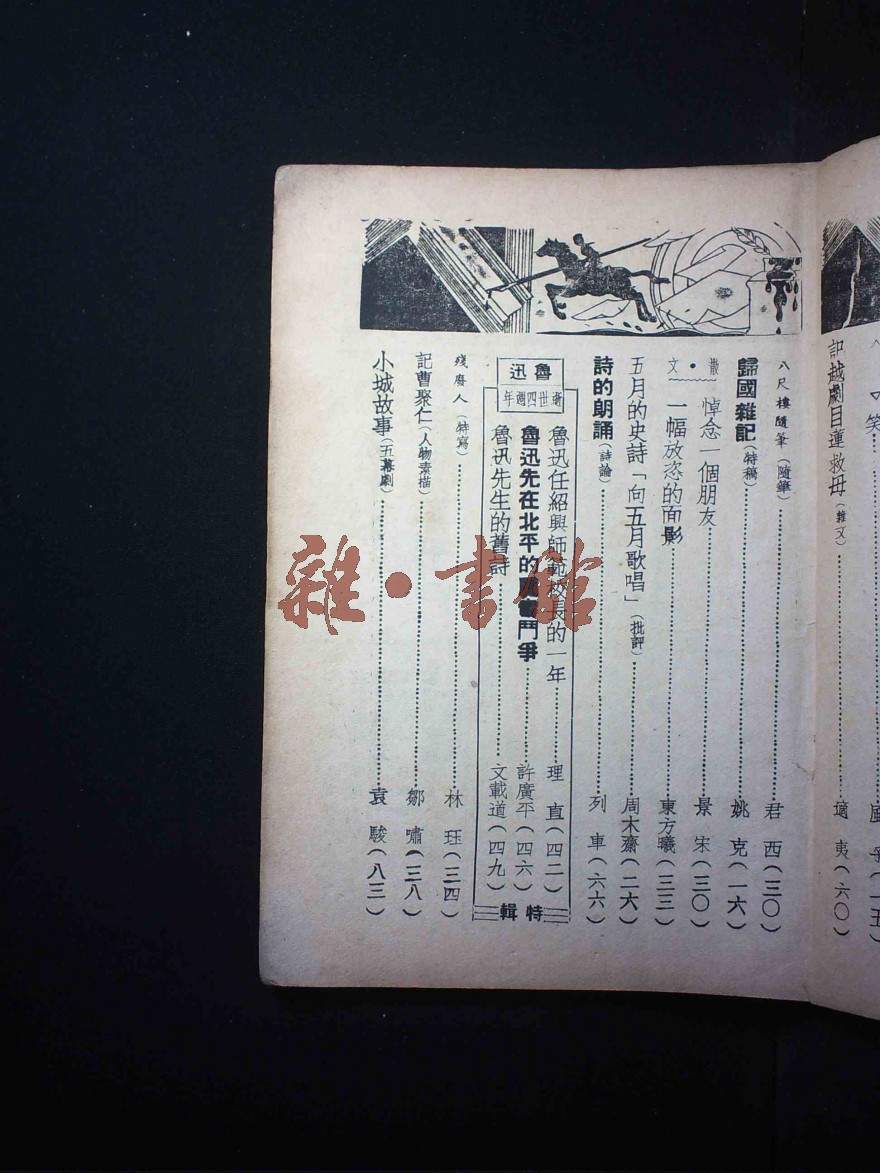 笑
(一五)
記越劇目蓮救母(雜文)
適夷(六〇)
八尺樓隨筆(隨筆)
君西(三〇)
歸國雜記(特稿)
姚克(一六)
散·文
悼念一個朋友
景宋(三〇)
一幅放恣的面影
東方曦(三三)
五月的史詩「向五月歌唱」(批評)
周木齋(二六)
詩的朗誦(詩論)
列車(六六)
魯迅
逝世四週年
魯迅任紹興師範校長的一年
理直(四二)
魯迅先在北平的鬥爭
許廣平(四六)
魯迅先生的舊詩
文載道(四九)
特輯
殘廢人(特寫)
林玨(三四)
記曹聚仁(人物素描)
鄒嘯(三八)
小城故事(五幕劇)
袁駿(八三)
雜·書館